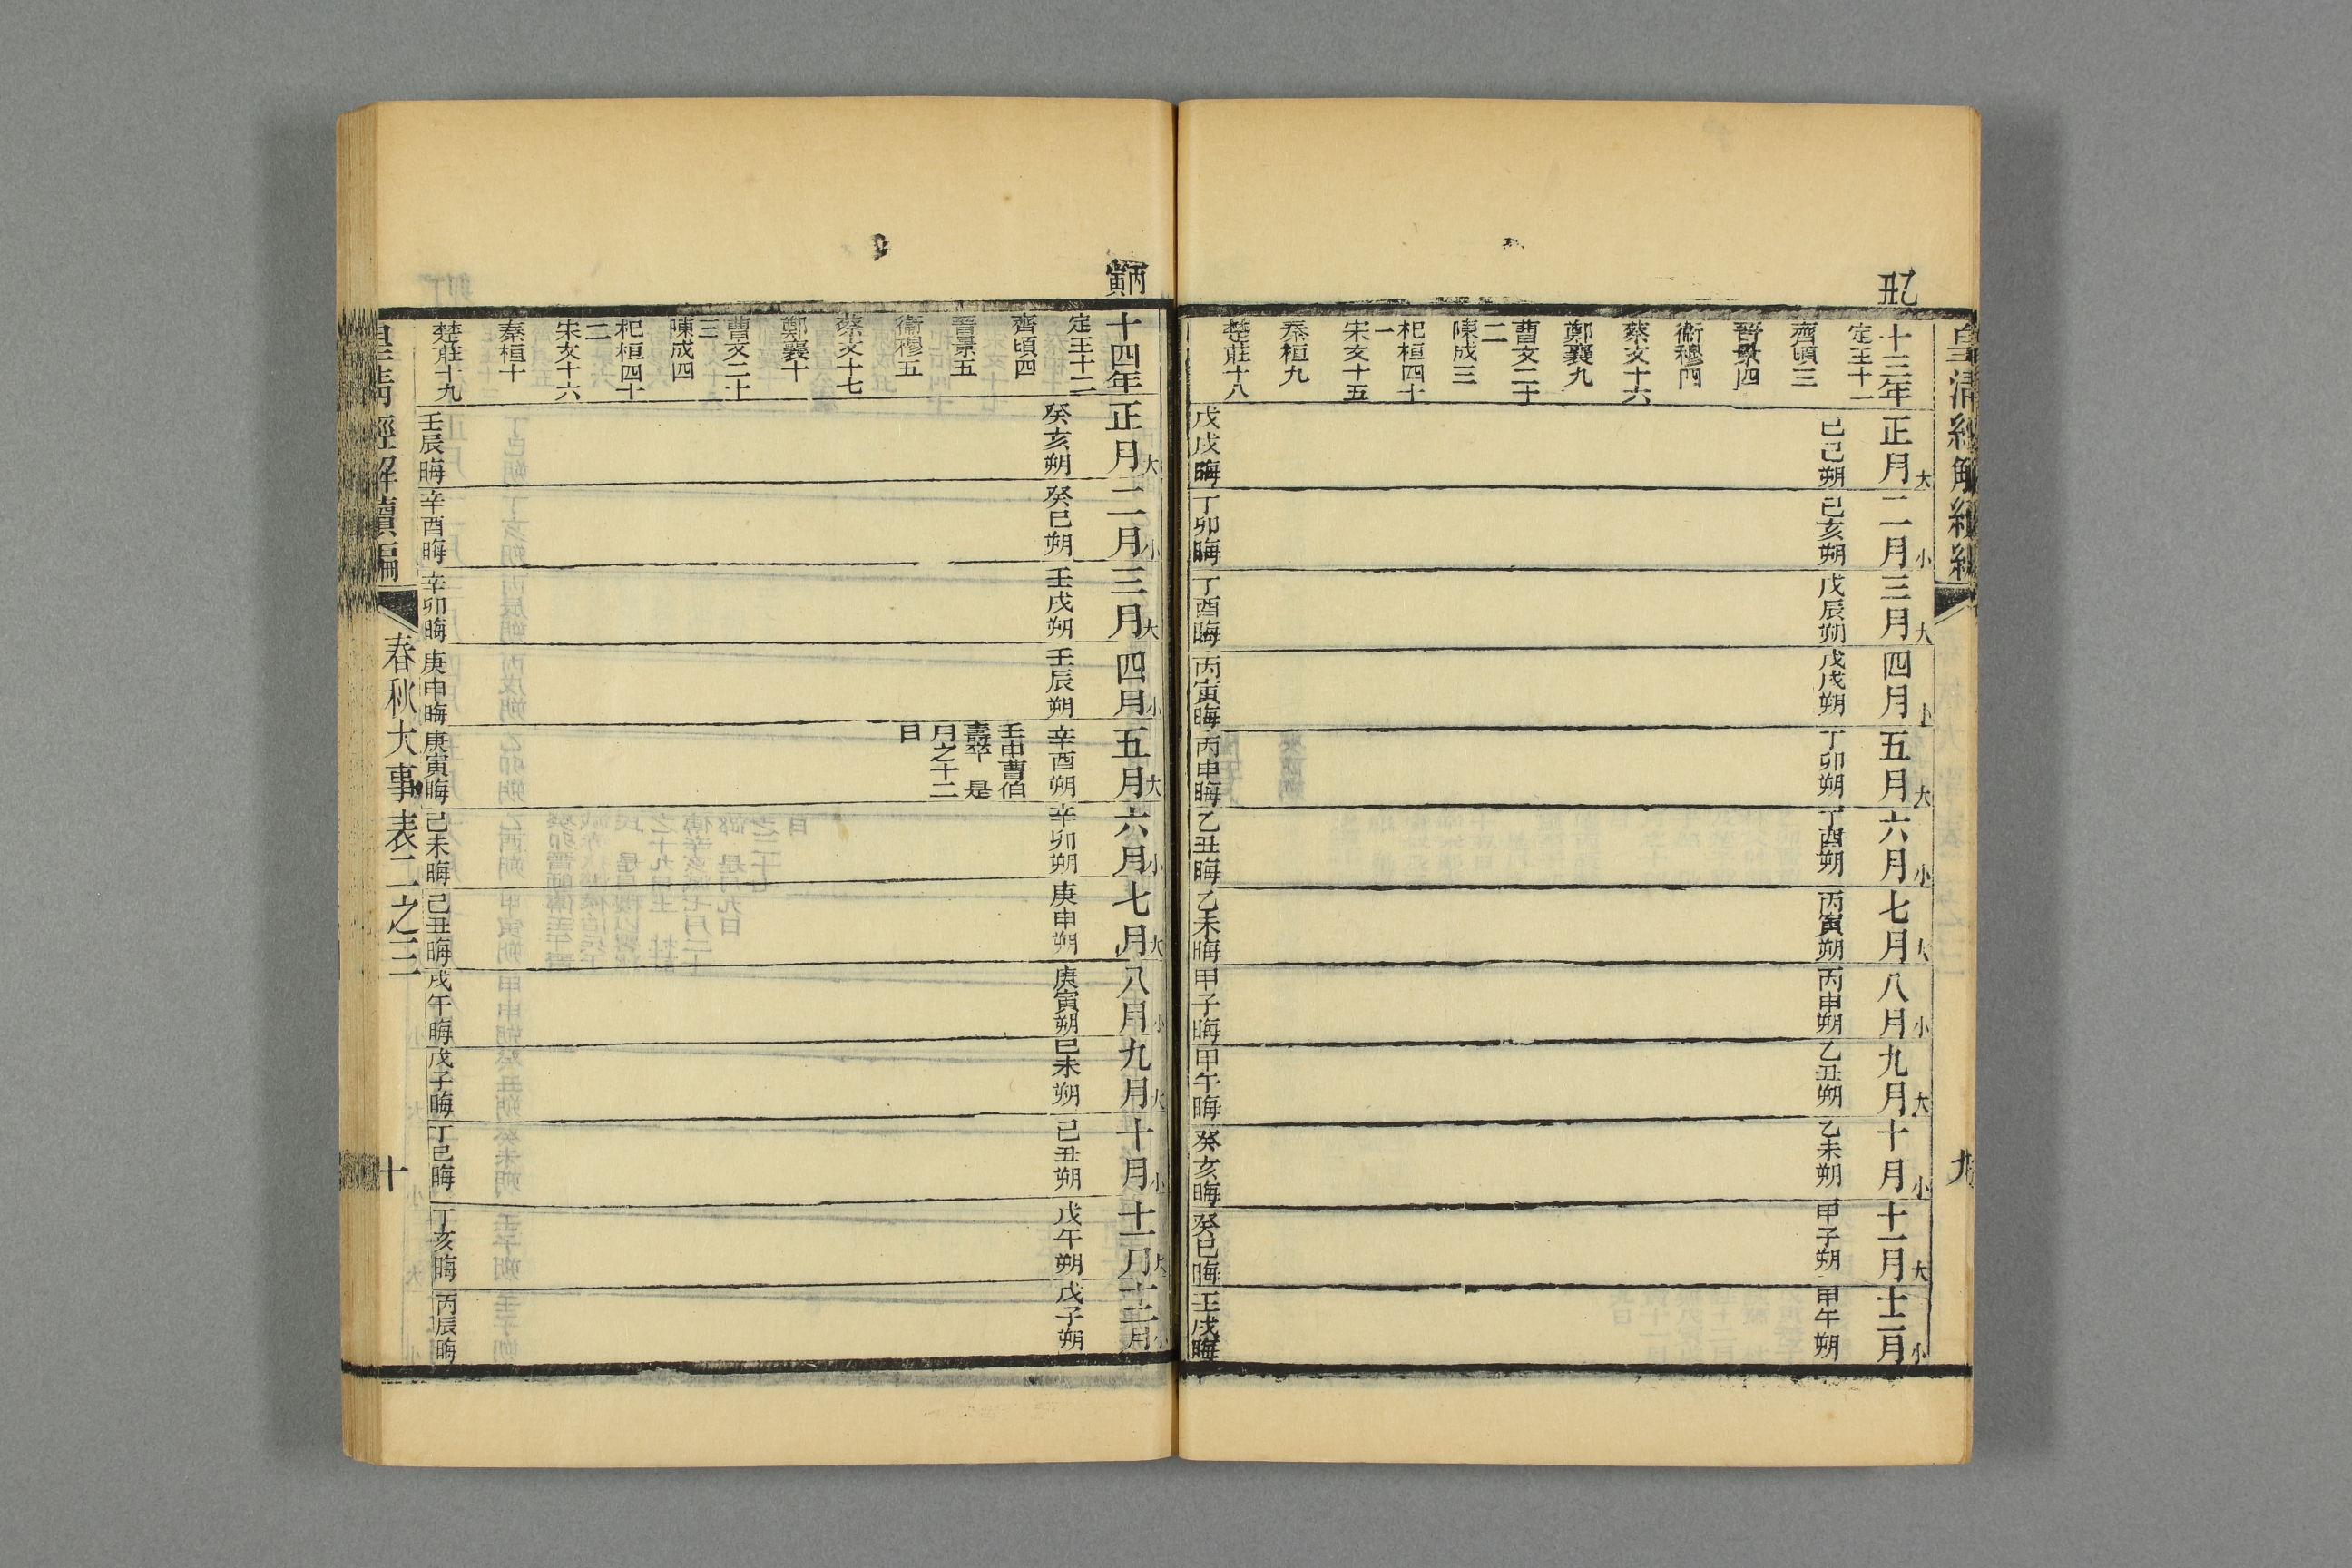 乙丑
皇淸經解續編
九
十三年
正月大
二月小
三月大
四月小
五月大
六月小
七月大
八月小
九月大
十月小
十一月大
十二月小
定王十一
齊頃三
晉景四
衞穆四
蔡文十六
鄭襄九
曹文二十
二
陳成三
杞桓四十
一
宋文十五
秦桓九
楚莊十八
己巳朔
己亥朔
戊辰朔
戊戌朔
丁卯朔
丁酉朔
丙寅朔
丙申朔
乙丑朔
乙未朔
甲子朔
甲午朔
戊戌晦
丁卯晦
丁酉晦
丙寅晦
丙申晦
乙丑晦
乙未晦
甲子晦
甲午晦
癸亥晦
癸巳晦
壬戌晦
丙寅
十四年
正月大
二月小
三月大
四月小
五月大
六月小
七月大
八月小
九月大
十月小
十一月大
十二月小
定王十二
齊頃四
晉景五
衞穆五
蔡文十七
鄭襄十
曹文二十
三
陳成四
杞桓四十
二
宋文十六
秦桓十
楚莊十九
癸亥朔
癸巳朔
壬戌朔
壬辰朔
辛酉朔
壬申曹伯
壽卒 是
月之十二
日
辛卯朔
庚申朔
庚寅朔
己未朔
己丑朔
戊午朔
戊子朔
壬辰晦
辛酉晦
辛卯晦
庚申晦
庚寅晦
己未晦
己丑晦
戊午晦
戊子晦
丁巳晦
丁亥晦
丙辰晦
皇淸經解續編
春秋大事表二之三
十